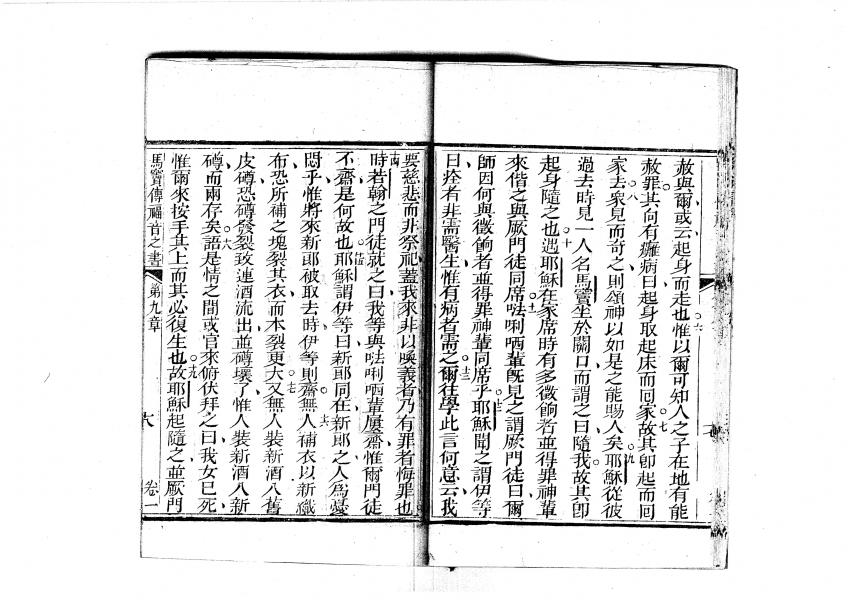 赦與爾或云起身而走也惟以爾可知人之子在地有能
赦罪其向有癱病曰起身取起床而囘家故其卽起而囘
家去衆見而奇之則頌神以如是之能賜人矣耶穌從彼
過去時見一人名馬竇坐於關口而謂之曰隨我故其卽
起身隨之也遇耶穌在家席時有多徵餉者並得罪神輩
來偕之與厥門徒同席𠵽唎哂輩旣見之謂厥門徒曰爾
師因何與徵餉者並得罪神輩同席乎耶穌聞之謂伊等
曰痊者非需醫生惟有病者需之爾往學此言何意云我
要慈悲而非祭祀蓋我來非以喚義者乃有罪者悔罪也
時若翰之門徒就之曰我等與𠵽唎哂輩屢齋惟爾門徒
不齋是何故也耶穌謂伊等曰新郎同在新郎之人爲憂
悶乎惟將來新郎被取去時伊等則齋無人補衣以新織
布恐所補之塊裂其衣而木裂更大又無人裝新酒入舊
皮罇恐罇發裂致連酒流出並罇壞了惟人裝新酒入新
罇而兩存矣語是情之間或官來俯伏拜之曰我女已死
惟爾來按手其上而其必復生也故耶穌起隨之並厥門
馬竇傳福音之書 第九章 卷一